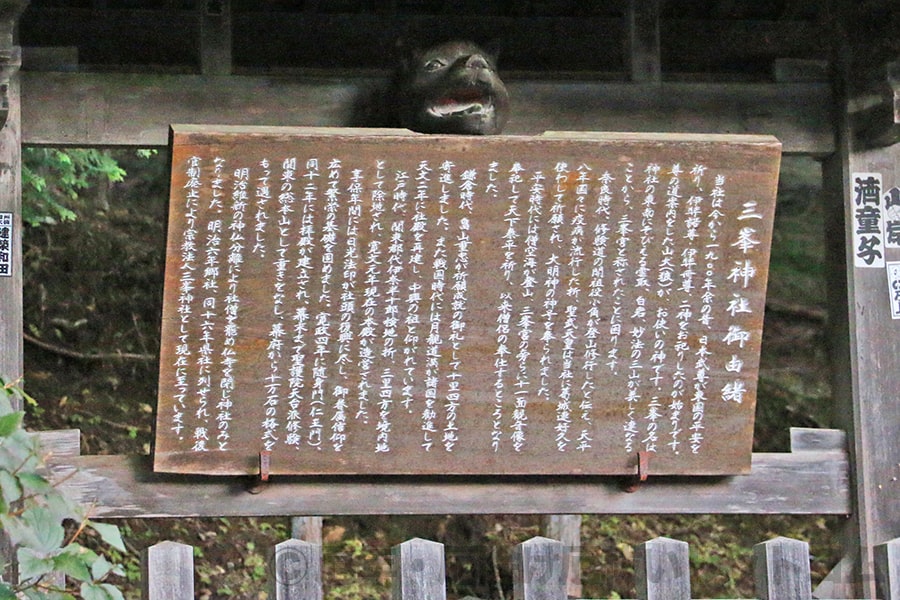 三峯神社御由緒
当社は今から一九〇〇年余の昔、日本武尊が東国の平安を
祈り、伊弉諾尊・伊弉册尊、二神をお祀りしたのが始まりです。
尊の道案内をした山犬(狼)が、お使いの神です。三峯の名は
神社の東南にそびえる雲取、白岩、妙法の三山が美しく連なる
ことから、三峯宮と称されたことに因ります。
奈良時代、修験道の開祖役小角が登山修行したと伝え、天平
八年国々に疫病が流行した折、聖武天皇は当社に葛城連好久を
使わして祈願され、大明神の神号を奉られました。
平安時代には僧空海が登山、三峯宮の傍らに十一面観音像を
奉祀して天下泰平を祈り、以来僧侶の奉仕するところとなり
ました。
鎌倉時代、畠山重忠が祈願成就の御礼として十里四方の土地を
寄進しました。また戦国時代には月観道満、諸国を勧進して
天文二年に社殿を再建し、中興の祖と仰がれています。
江戸時代、関東郡代伊奈半十郎検地の折、三里四方を境内地
として除地され、寛文元年現在の本殿が造営されました。
享保年間には日光法印が社頭の復興に尽し、御眷属信仰を
広めて繁栄の基礎を固めました。寛政四年に随身門(仁王門)、
同十二年には拝殿が建立され、幕末まで聖護院天台派修験、
関東の総本山として重きをなし、幕府から十万石の格式を
もって遇されました。
明治維新の神仏分離により社僧を廃め仏寺を閉じ神社のみと
なりました。明治六年郷社、同十六年県社に列せられ、戦後
官制廃止により宗教法人三峯神社として現在に至っています。
酒童子
建築和田